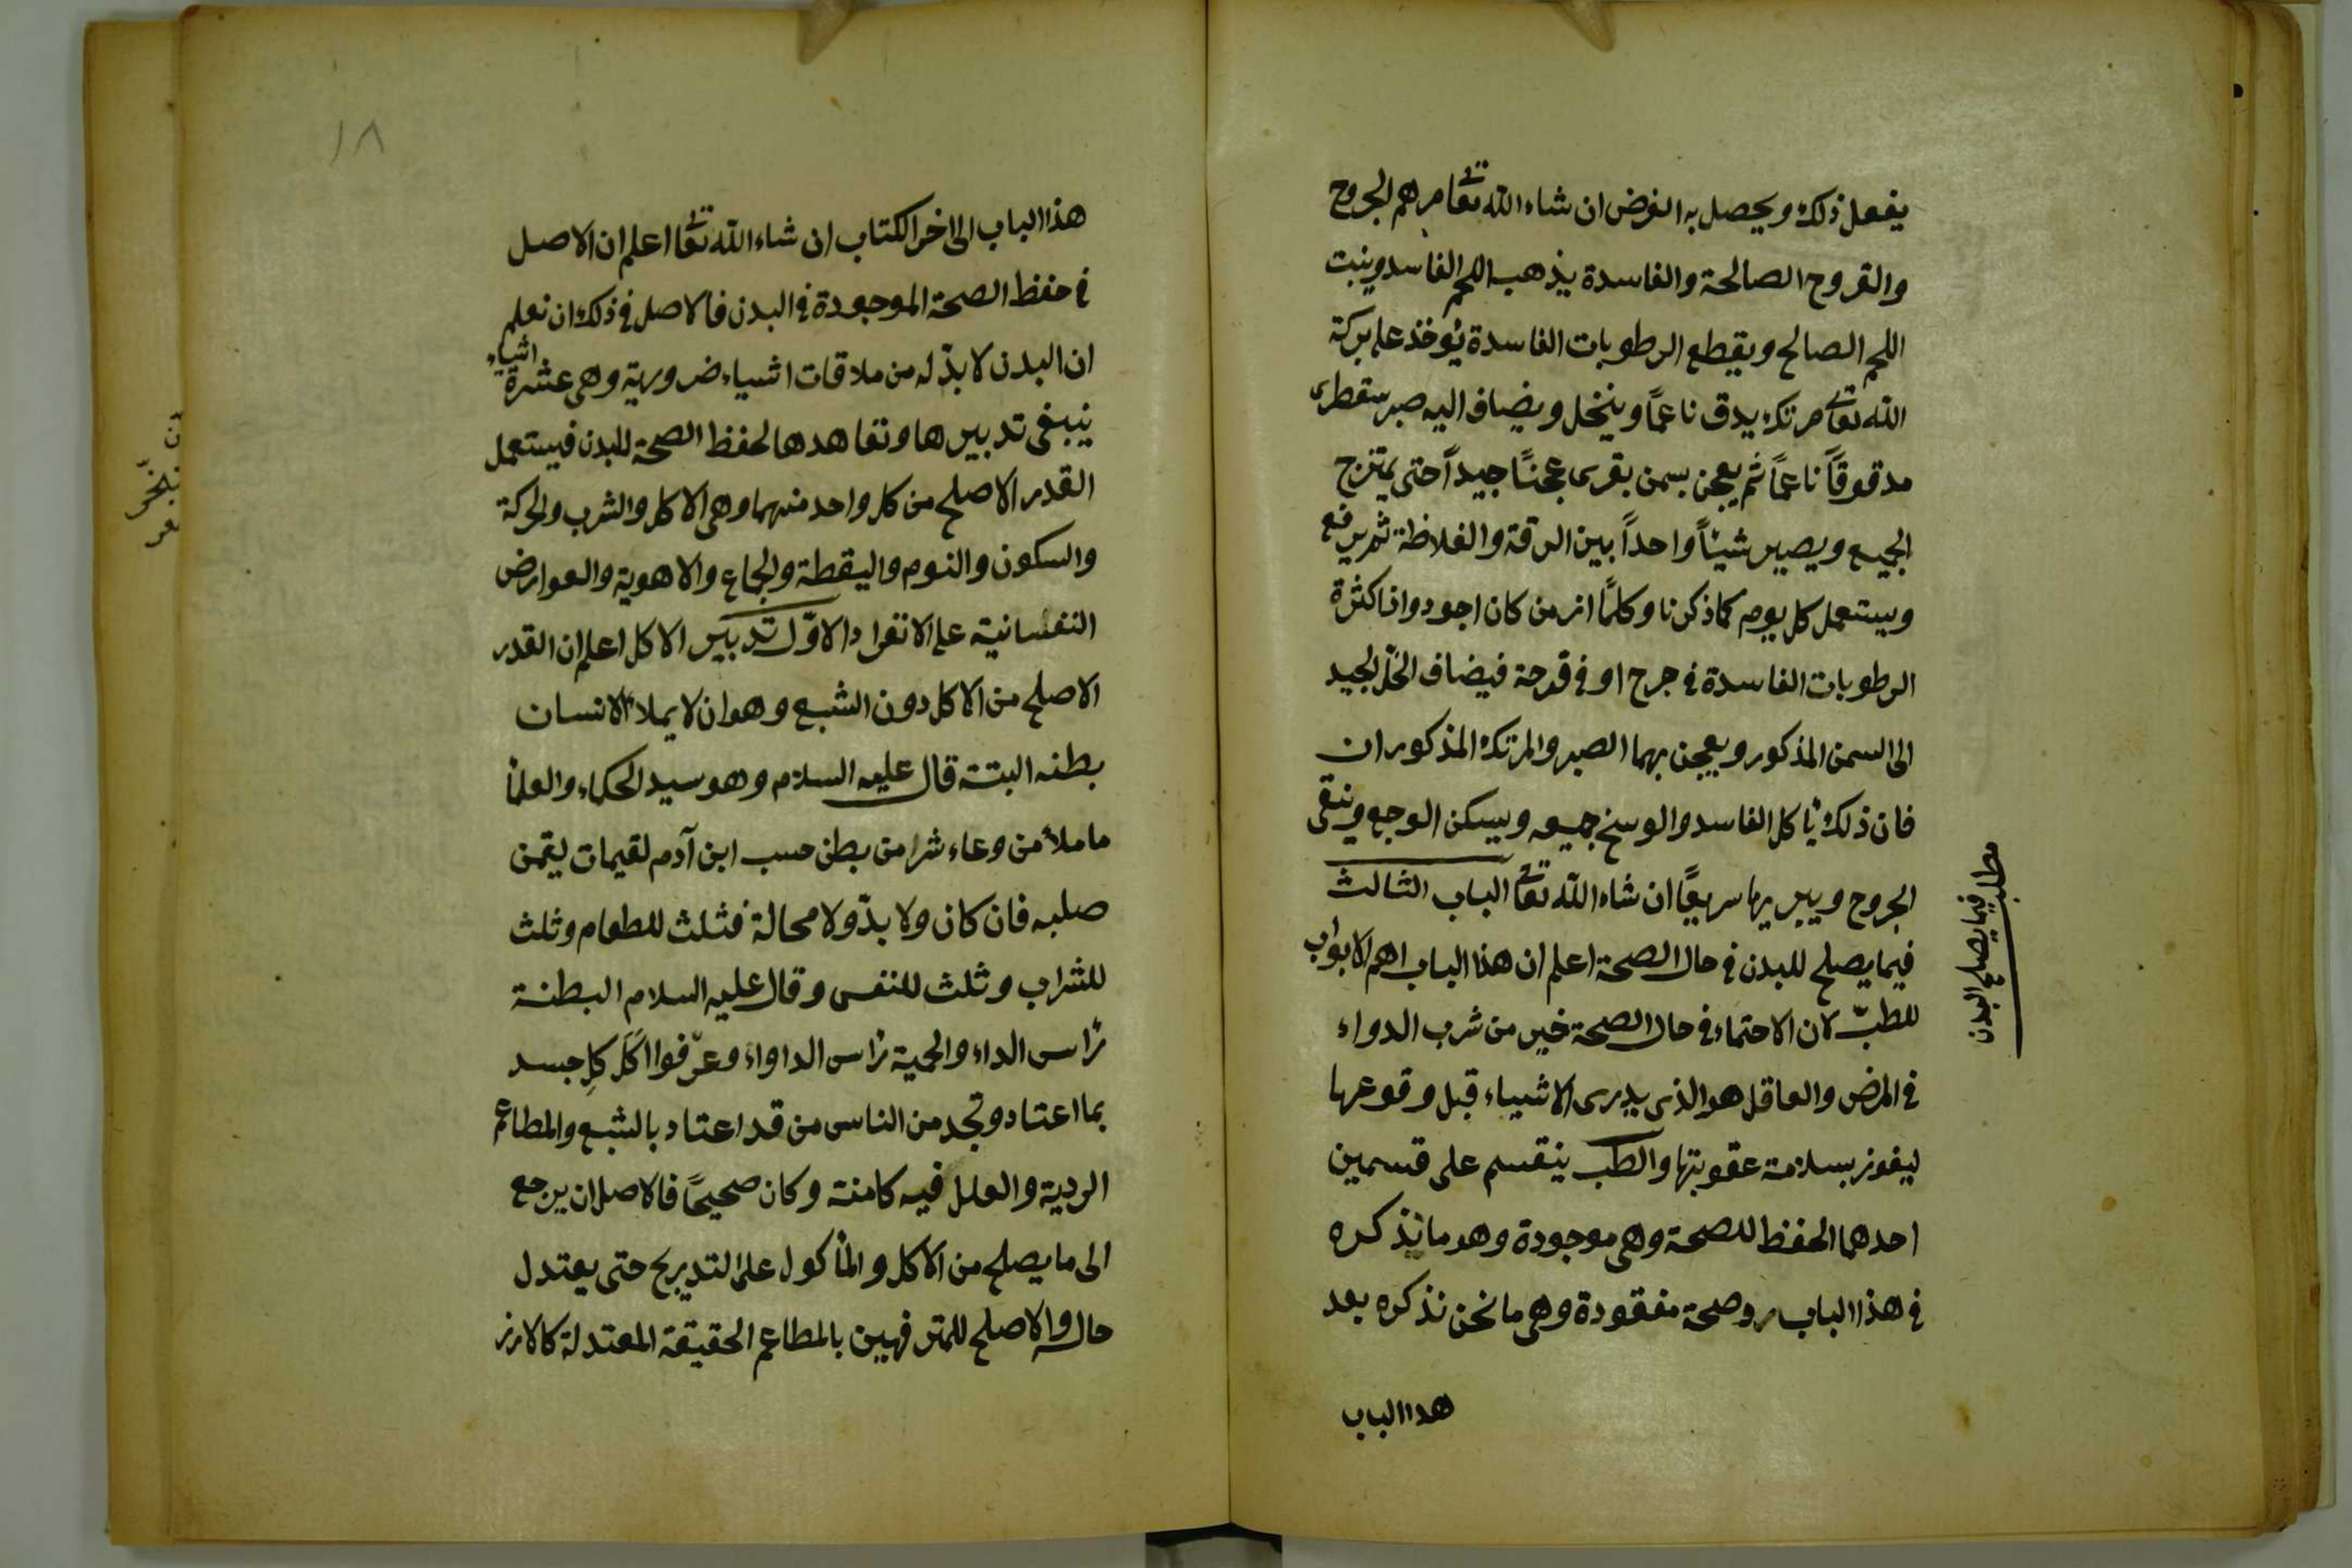 يفعل ذلك ويحصل به الغرض ان شاء الله تعا مرهم الجروح
والقروح الصالحة والفاسدة يذهب اللحم الفاسد وينبت
اللحم الصالح ويقطع الرطوبات الفاسدة يُوخذ على بركة
الله تعا مرتك يدق ناعمًا وينخل ويضاف اليه صبر سقطرى
مدقوقًا ناعمًا ثم يعجن بسمن بقرى عجنًا جيدًا حتى يمتزج
الجميع ويصير شيئًا واحدًا بين الرقة والغلاظة ثم يرفع
ويستعمل كل يوم كما ذكرنا وكلمّا ازمن كان اجود واذا كثرة
الرطوبات الفاسدة في جرح او في قرحة فيضاف الخلّ الجيد
الى السمن المذكور ويعجن بهما الصبر والمرتك المذكوران
فان ذلك يأكل الفاسد والوسخ جميعه ويسكن الوجع وينقى
الجروح ويبريها سريعًا ان شاء الله تعا الباب الثالث
فيما يصلح للبدن في حال الصحة اعلم ان هذا الباب اهم الابواب
للطبّ لان الاحتماء في حال الصحة خير من شرب الدواء
في المرض والعاقل هو الذى يدرى الاشياء قبل وقوعها
ليفوز بسلامة عقوبتها والطب ينقسم على قسمين
احدهما الحفظ للصحة وهى موجودة وهد ما نذكره
في هذا الباب روصحة مفقودة وهى ما نحن نذكره بعد
هدا الباب
مطلب
فيما يصلح البدن
١٨
هذا الباب الى اخر الكتاب ان شاء الله تعا اعلم ان الاصل
في حفظ الصحة الموجودة في البدن فالاصل في ذلك ان نعلم
ان البدن لا بدّ له من ملاقات اشياء ضرورية وهى عشرة اشياء
ينبغى تدبيرها وتعاهدها لحفظ الصحة للبدن فيستعمل
القدر الاصلح من كل واحد منهما وهى الاكل والشرب والحركة
والسكون والنوم واليقطة والجماع والاهوية والعوارض
النفسانية على الانفراد الاوّل تدبير الاكل اعلم ان القدر
الاصلح من الاكل دون الشبع وهو ان لا يملاء الانسان
بطنه البتة قال عليه السلام وهو سيد الحكماء والعلمأ
ما ملأ من وعاء شرا من بطن حسب ابن آدم لقيمات يقمن
صلبه فان كان ولا بدّ ولا محالة فثلث للطعام وثلث
للشراب وثلث للنفس وقال عليه السلام البطنة
رأس الداء والحمية رأس الداواء وعرّفوا اكَل كلِ جسد
بما اعتاد وتجد من الناس من قد اعتاد بالشبع والمطاعم
الردية والعلل فيه كامنة وكان صحيحًا فالاصل ان يرجع
الى ما يصلح من الاكل والمأكول على التدريج حتى يعتدل
حاله والاصلح للمترفهين بالمطاعم الحقيقة المعتدلة كالارز